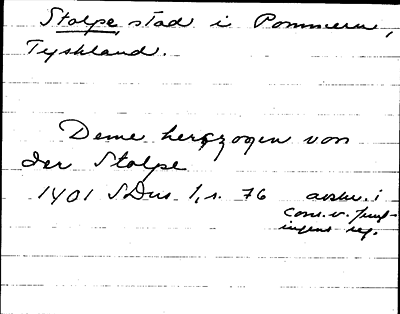 Stolpe, stad i Pommern,
Tyskland.
Deme herczogen von
der Stolpe
1401 SDns 1, s. 76 avskr. i
Cons. v. Jung-
ingens reg.